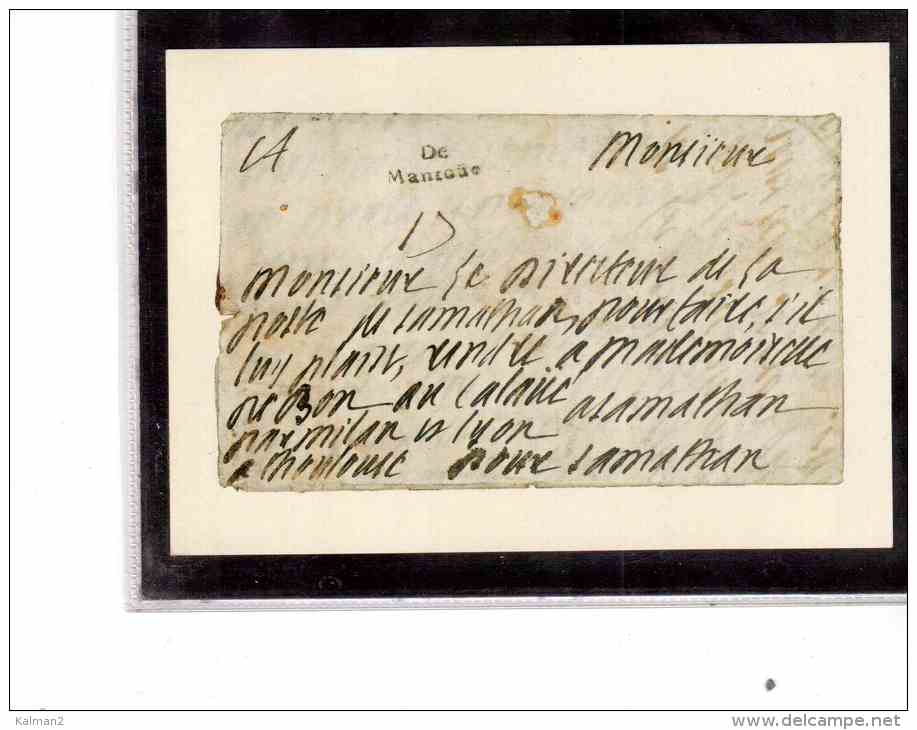 De
Mantoüe
Monsieur
Monsieur Le Directeur de La
poste de Lamathan, pour faire, s'il
luy plaist, rendre a Mademoiselle
de Bon au
a Lamathan
par milan et lyon
a thoulouse pour Lamathan
Kalman2
www.delcampe.net